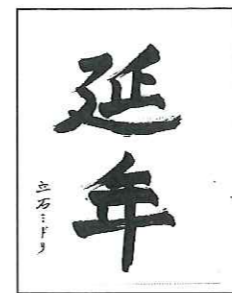 延年
立石ミドリ